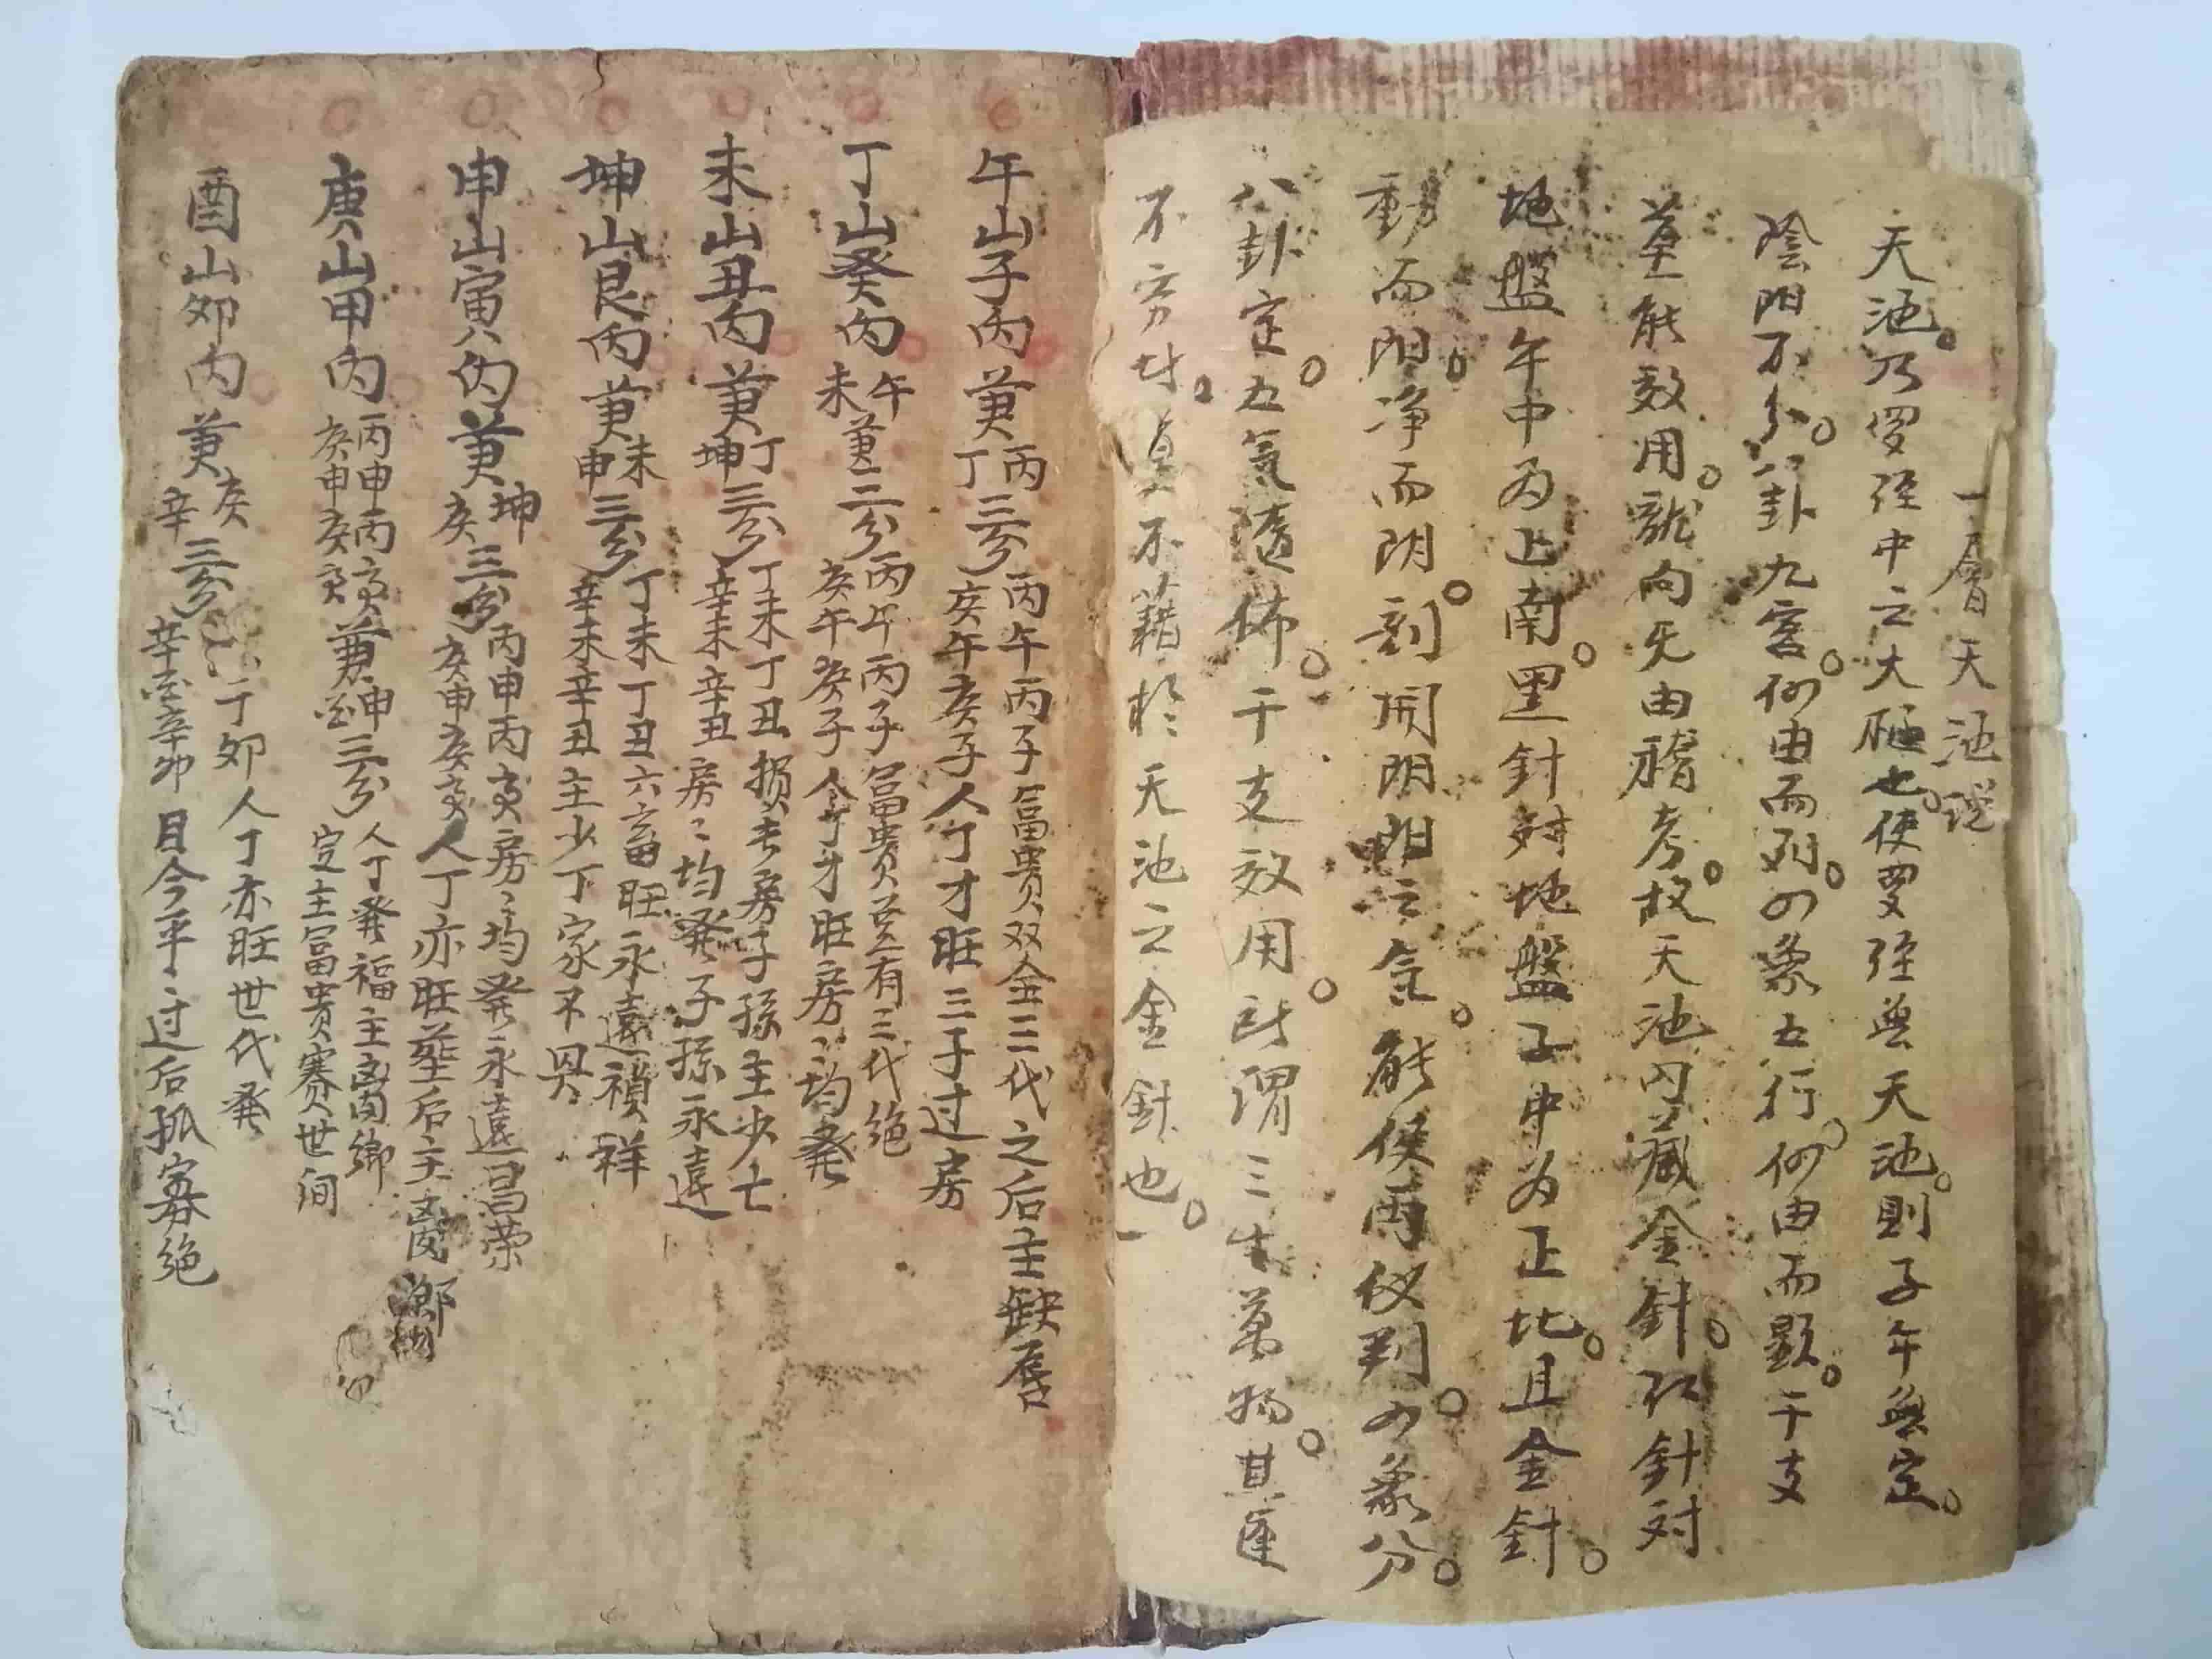 一層天池说
天池。乃罗经中之大枢也。使罗经無天池。則子午無定。
陰阳不分。八卦九宫。何由而列。四象五行。何由而顕。干支
莫能效用。龍向无由稽考。故天池内藏金針。红針对
地盤午中为正南。黑針对地盤子中为正北。且金針。
動而阳。净而阴。剖開阴阳之氣。能使两仪判。四象分。
八卦定。五氣随佈。干支效用。所谓三生萬物。其运
不穷才。莫不藉於天池之金針也。
午山子丙兼丙丁三分丙午丙子富贵双全三代之后主缺唇
庚午庚子人丁才旺三子过房
丁山癸丙兼午未三分丙午丙子富贵並有三代绝
庚午庚子人丁才旺房〻均発
未山丑丙兼丁坤三分丁未丁丑損长房子孫主少亡
辛未辛丑房〻均発子孫永遠
坤山艮丙兼未申三分丁未丁丑六畜旺永遠禎祥
辛未辛丑主少丁家不興
申山寅丙兼坤庚三分丙申丙寅房〻均発永遠昌荣
庚申庚寅人丁亦旺塟后主离鄉
庚山甲丙丙申丙寅庚申庚寅兼申酉三分人丁発福主离鄉
定主富贵赛世间
酉山卯丙兼庚辛三分丁卯人丁亦旺世代発
辛酉辛卯目今平〻过后孤寡绝